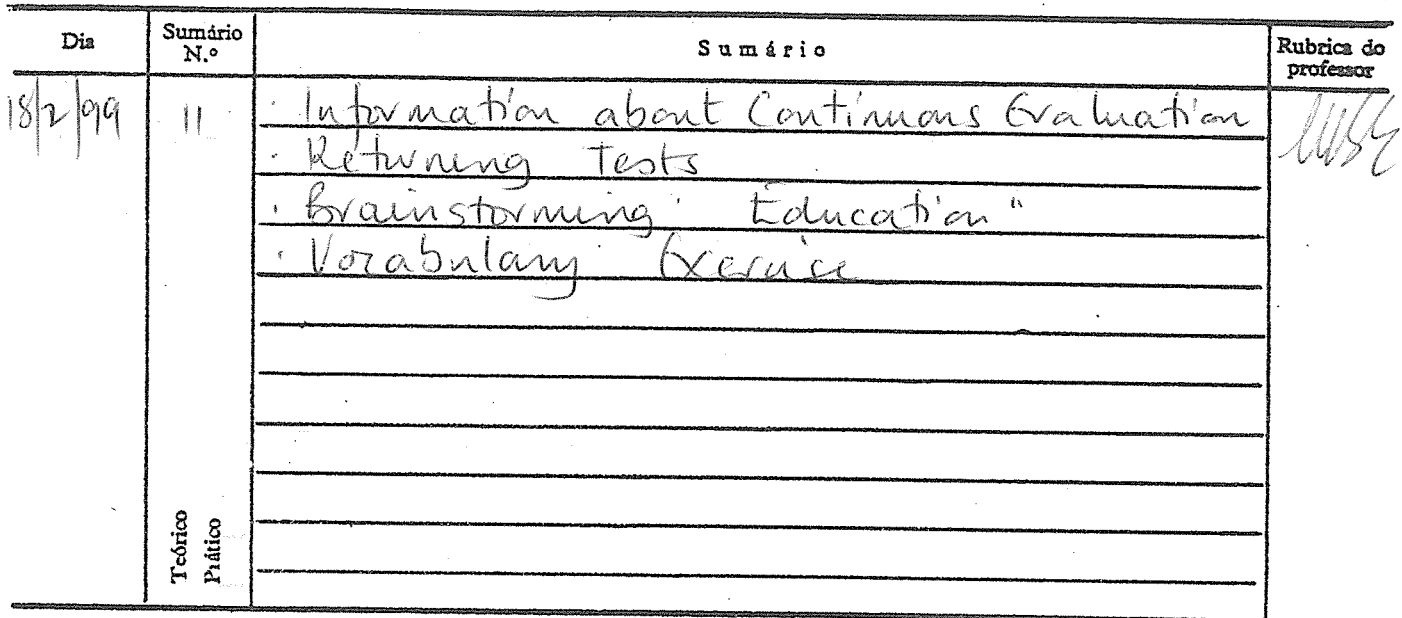 Dia Sumário N.º Sumário Rubrica do professor
18/2/99 11 · Information about Continuous Evaluation
· Returning Tests
· Brainstorming "Education"
· Vocabulary Exercise
Teórico
Prático